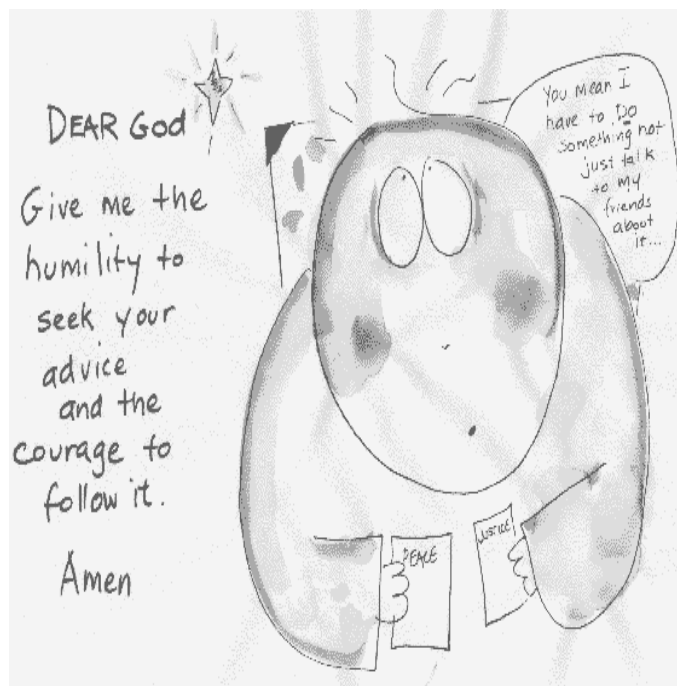 DEAR GOD
Give me the
humility to
seek your
advice
and the
courage to
follow it.
Amen
You mean I
have to DO
something not
just talk
to my
friends
about
it...
PEACE
JUSTICE